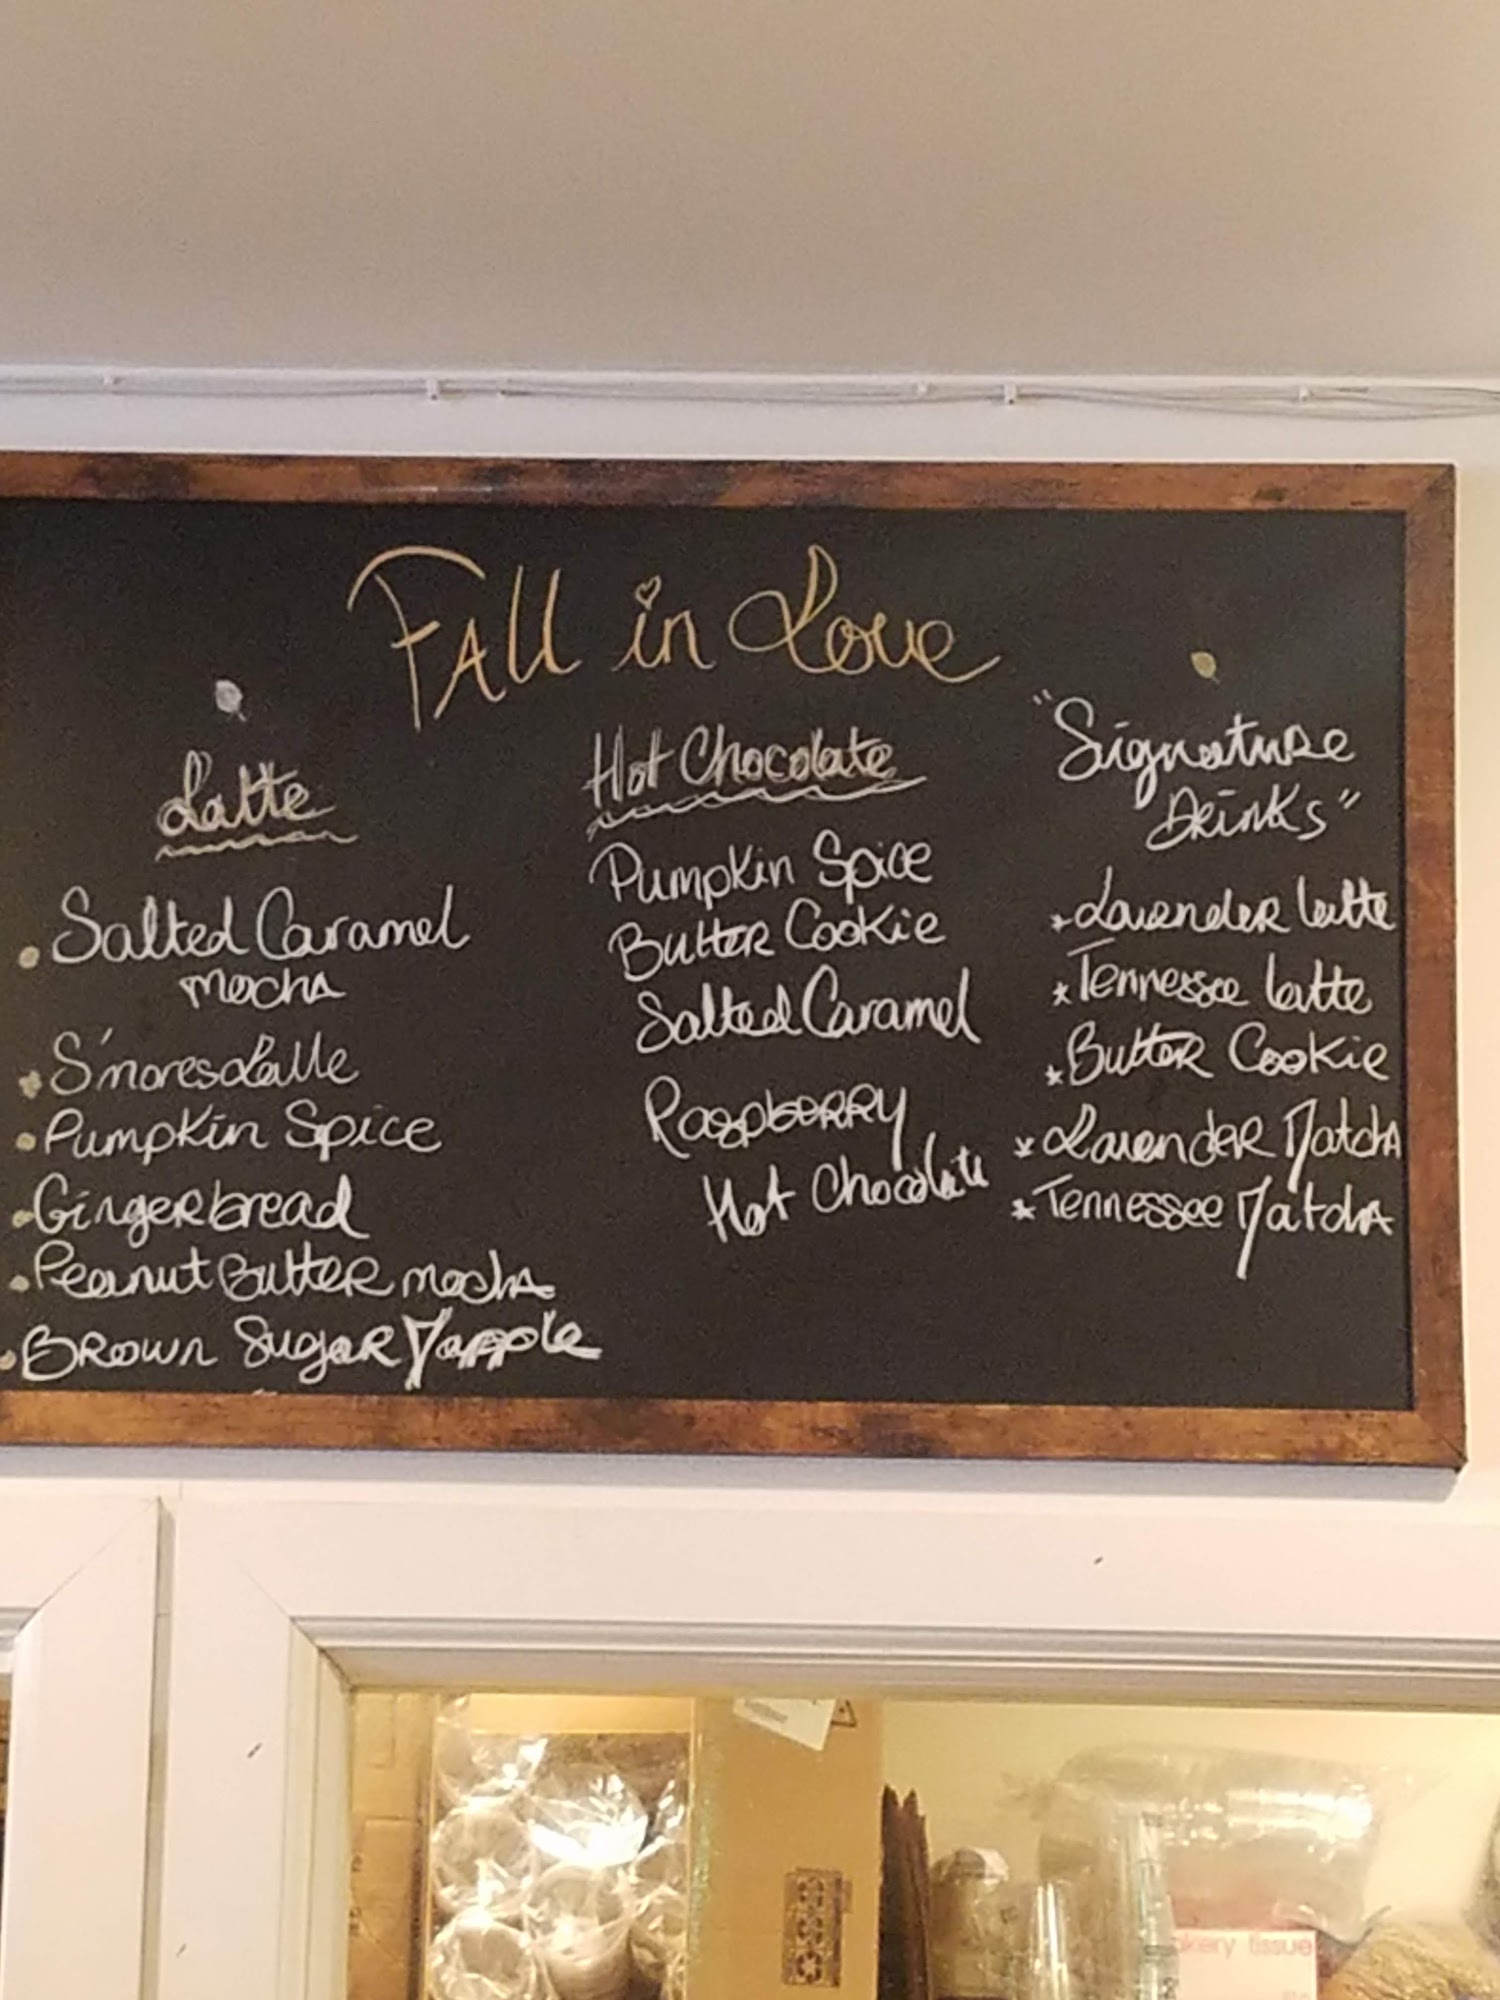 Fall in Love
Latte
Salted Caramel
Mocha
S'mores Latte
Pumpkin Spice
Gingerbread
Peanut Butter Mocha
Brown Sugar Mapple
Hot Chocolate
Pumpkin Spice
Butter Cookie
Salted Caramel
Raspberry
Hot Chocolate
"Signature
Drinks"
*Lavender latte
*Tennessee latte
*Butter Cookie
*Lavender Matcha
*Tennessee Matcha
kery tissue